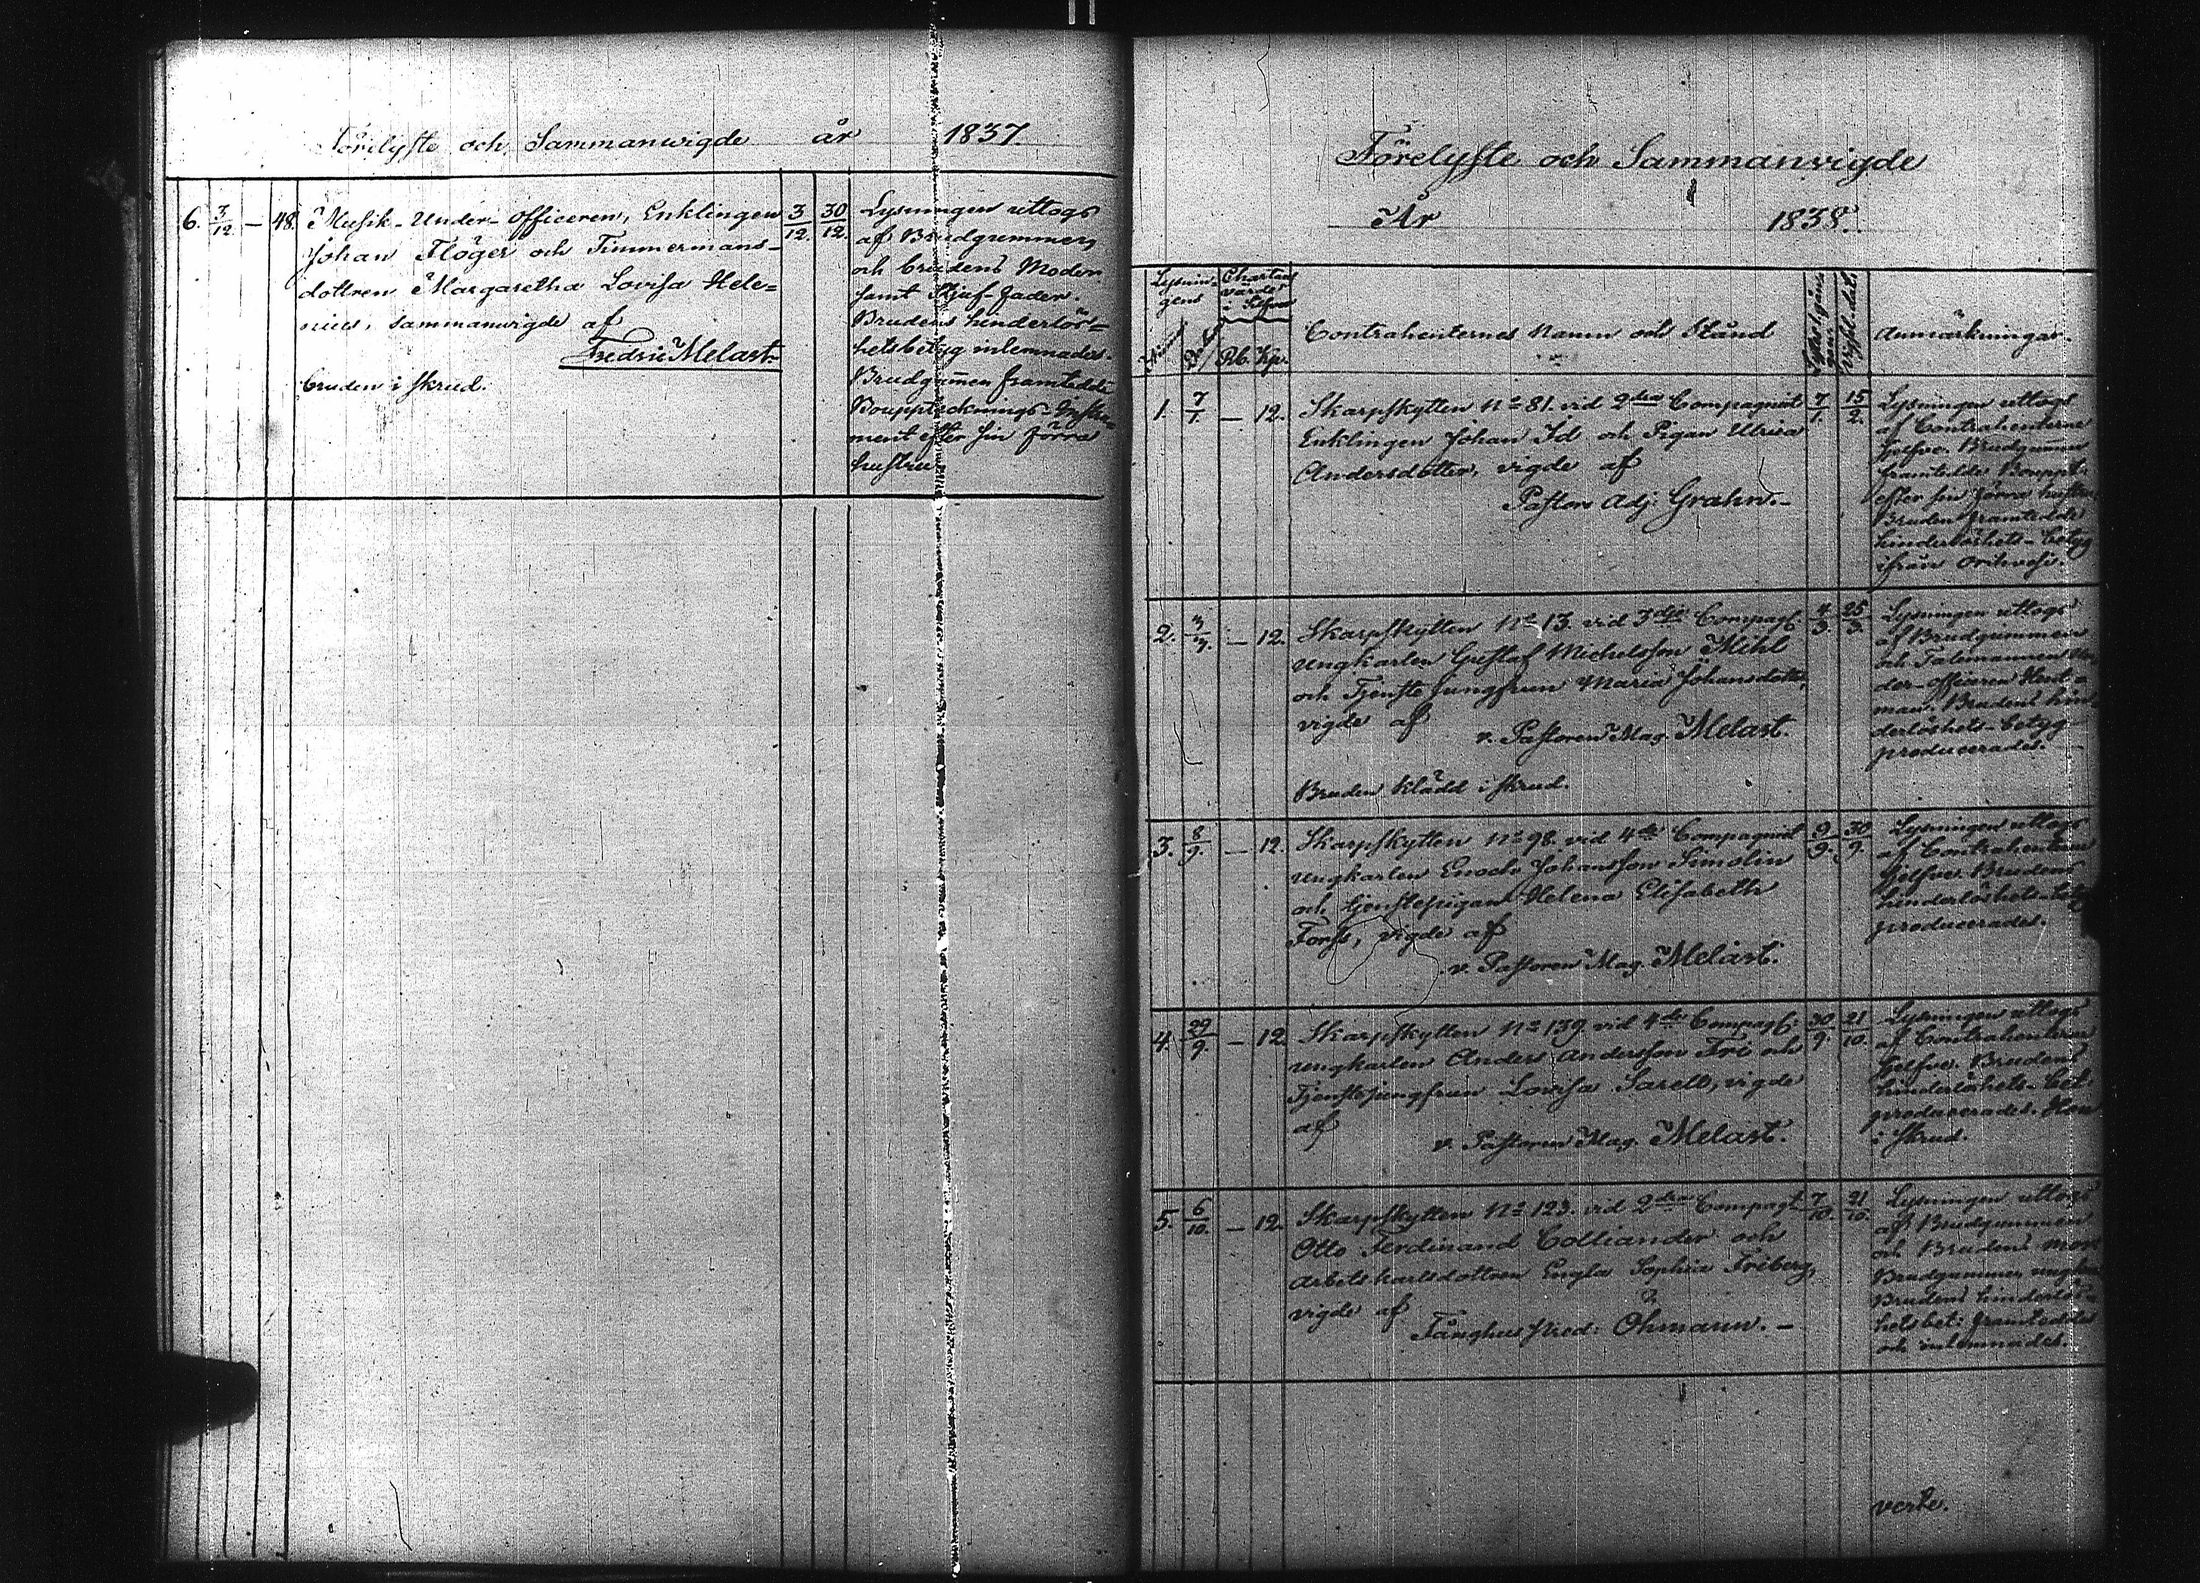 Förelyste och Sammanwigde år 1837.
6. 3/12 — 48. Musik-Under-officeren, Enklingen 3/12. 30/12.
Johan Flöger och Timmermans-
dottren Margaretha Lovisa Hele-
nius, sammanwigde af
Fredric Melart
bruden i skrud.
Lysningen uttogs
af Brudgummen
och brudens Moder
samt Stjuf-fader.
Brudens hinderlös-
hetsbetyg inlemnades.
Brudgumen framtedde
Boupptecknings-Instru-
ment efter sin förra
hustru
Förelyste och Sammanvigde
År 1838.
Lysnin-
gens
Chartæ
värde
i Silfver
Rb. Kp.
Contrahenternes namn och Stånd
Anmärkningar.
1. 7/1 — 12. Skarpskytten No 81. vid 2dra Compagniet 7/1. 15/2.
Enklingen Johan Id och Pigan Ulrica
Andersdotter, vigde af
Pastors Adj: Grahn.—
Lysningen uttogs
af Contrahenterne
sjelfve. Brudgumen
framtedde Bouppt:
efter sin förra hustru
Bruden framtedde
hinderlöshets-betyg
ifrån Orihvesi.
2. — 12. Skarpskytten No 13. vid 3dje Compag: 4/3. 25/3.
ungkarlen Gustaf Michelsson Mihl
och Tjenstejungfrun Maria Johansdotter,
vigde af
v. Pastoren Mag. Melart.
Bruden klädd i skrud.
Lysningen uttogs
af Brudgummen
och Talemannen Un-
der-officeren
man. Brudens hin-
derlöshets-betyg
producerades.—
3. 8/9. — 12. Skarpskytten No 98. vid 4de Compagniet 9/9. 30/9.
ungkarlen Enoch Johansson Simolin
och tjenstepigan Helena Elisabeth
Forss, vigde af
v. Pastoren Mag. Melart.
Lysningen uttogs
af Contrahenterne
sjelfve. Brudens
hinderlöshets-betyg
producerades.
4. 29/9. — 12 Skarpskytten No 139 vid 4de Compag: 30/9 21/10.
ungkarlen Anders Andersson Fri och
Tjenstejungfrun Lovisa Sarell, vigde
af
v. Pastoren Mag. Melart.
Lysningen uttogs
af Contrahenterne
sjelfve. Brudens
hinderlöshets-bet.
producerades. Hon
i skrud.
5. 6/10. — 12. Skarpskytten No 123. vid 2dra Compagt 7/10. 21/10.
Otto Ferdinand Colliander och
arbetskarlsdottren Engla Sophia Friberg,
vigde af
Fånghus Pred: Öhmann.—
Lysningen uttogs
af Brudgummen
och Brudens mor
Brudgummen ungkarl
Brudens hinderlös-
hetsbet: framteddes
och inlemnades.
verte.